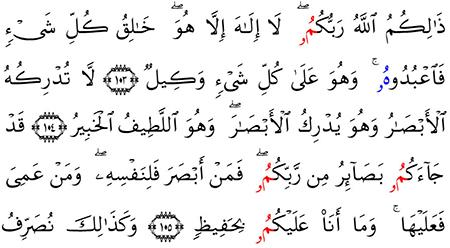 ذَٰلِكُمُ ٱللَّهُ رَبُّكُمُۥ ۖ لَآ إِلَٰهَ إِلَّا هُوَ ۖ خَٰلِقُ كُلِّ شَىْءٍۢ
فَٱعْبُدُوهُۥ ۚ وَهُوَ عَلَىٰ كُلِّ شَىْءٍۢ وَكِيلٌۭ ۝١٠٣ لَّا تُدْرِكُهُ
ٱلْأَبْصَٰرُ وَهُوَ يُدْرِكُ ٱلْأَبْصَٰرَ ۖ وَهُوَ ٱللَّطِيفُ ٱلْخَبِيرُ ۝١٠٤ قَدْ
جَآءَكُمُۥ بَصَآئِرُ مِن رَّبِّكُمُۥ ۖ فَمَنْ أَبْصَرَ فَلِنَفْسِهِۦ ۖ وَمَنْ عَمِىَ
فَعَلَيْهَا ۚ وَمَآ أَنَا۠ عَلَيْكُمُۥ بِحَفِيظٍۢ ۝١٠٥ وَكَذَٰلِكَ نُصَرِّفُ